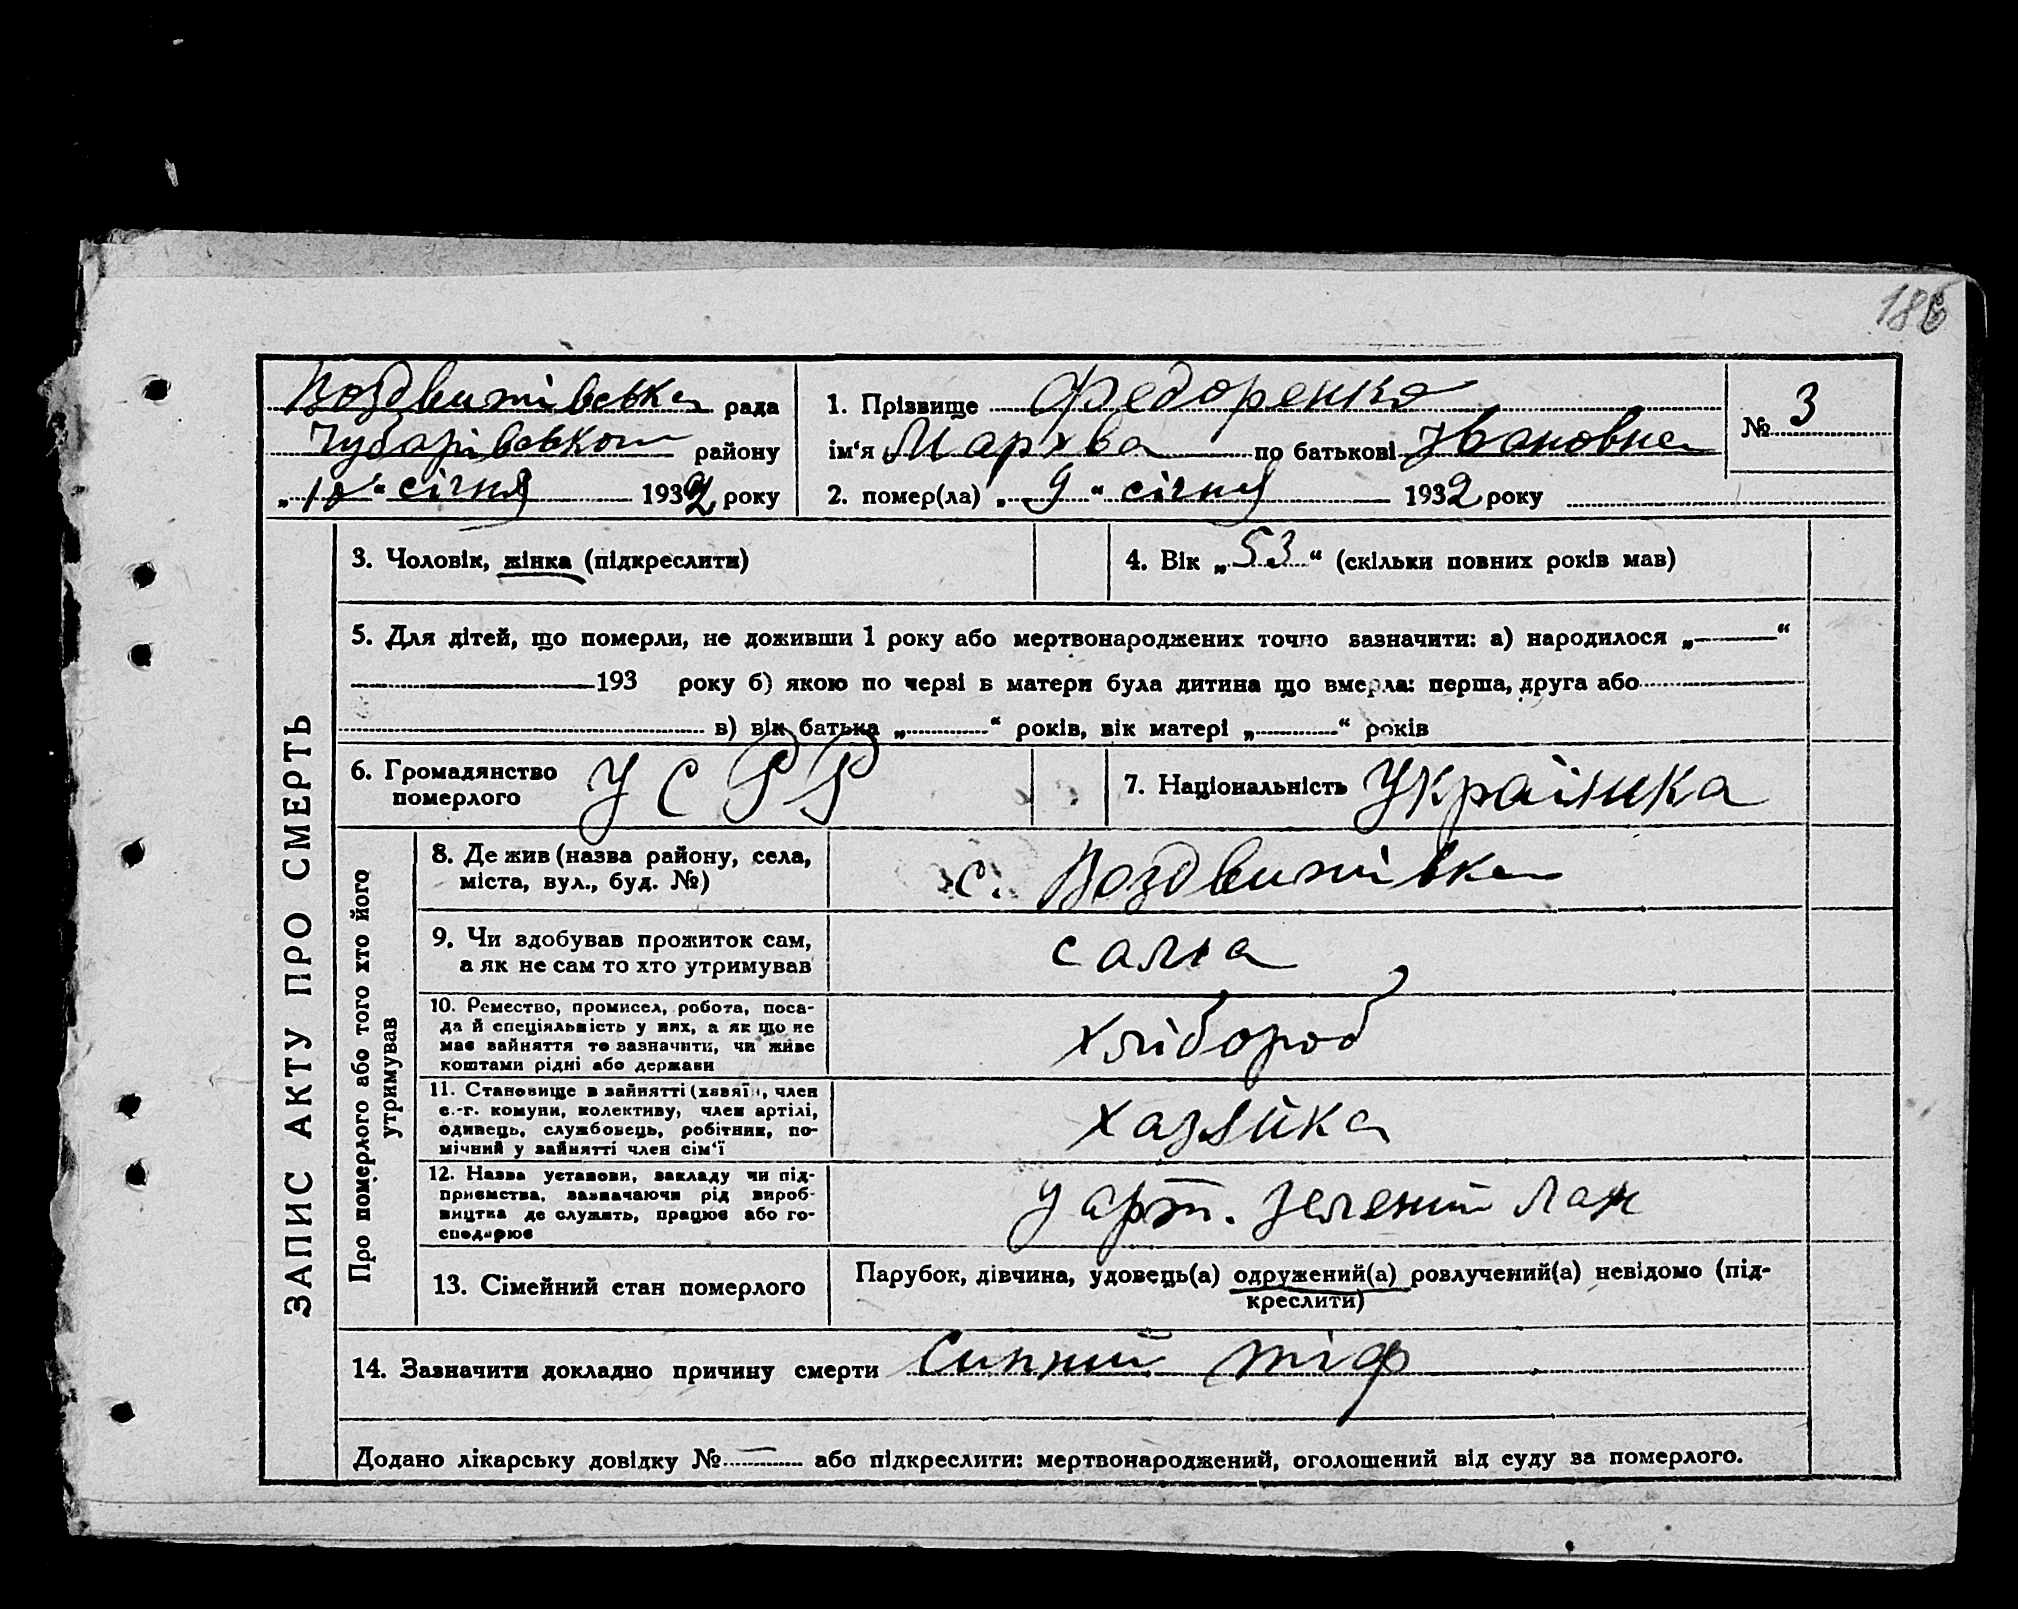 186
Воздвижівська рада
Чубарівського району
„10“ січня 1932 року
1. Прізвище Федоренко
ім‘я Мархва по батькові Івановна
2. помер(ла) „9“ січня 1932 року
№ 3
ЗАПИС АКТУ ПРО СМЕРТЬ
3. Чоловік, жінка (підкреслити)
4. Вік „53“ (скільки повних років мав)
5. Для дітей, що померли, не доживши 1 року або мертвонароджених точно зазначити: а) народилося „ “
193 року б) якою по черзі в матери була дитина що вмерла: перша, друга або
в) вік батька „ “ років, вік матері „ “ років
6. Громадянство
померлого
УСРР
7. Національність Українка
Про померлого або того хто його
утримував
8. Де жив (назва району, села,
міста, вул., буд. №)
с. Воздвижівка
9. Чи здобував прожиток сам,
а як не сам то хто утримував
сама
10. Ремество, промисел, робота, поса-
да й спеціяльність у них, а як що не
має зайняття то зазначити, чи живе
коштами рідні або держави
хлібороб
11. Становище в зайнятті (хазяїн, член
с.-г. комуни, колективу, член артілі,
одинець, службовець, робітник, по-
мічний у зайнятті член сім‘ї
хазяйка
12. Назва установи, закладу чи під-
приємства, зазначаючи рід вироб-
ництва де служить, працює або го-
сподарює
у арт. Зелений Лан
13. Сімейний стан померлого
Парубок, дівчина, удовець(а) одружений(а) розлучений(а) невідомо (під-
креслити)
14. Зазначити докладно причину смерти Сипний тіф
Додано лікарську довідку № — або підкреслити: мертвонароджений, оголошений від суду за померлого.